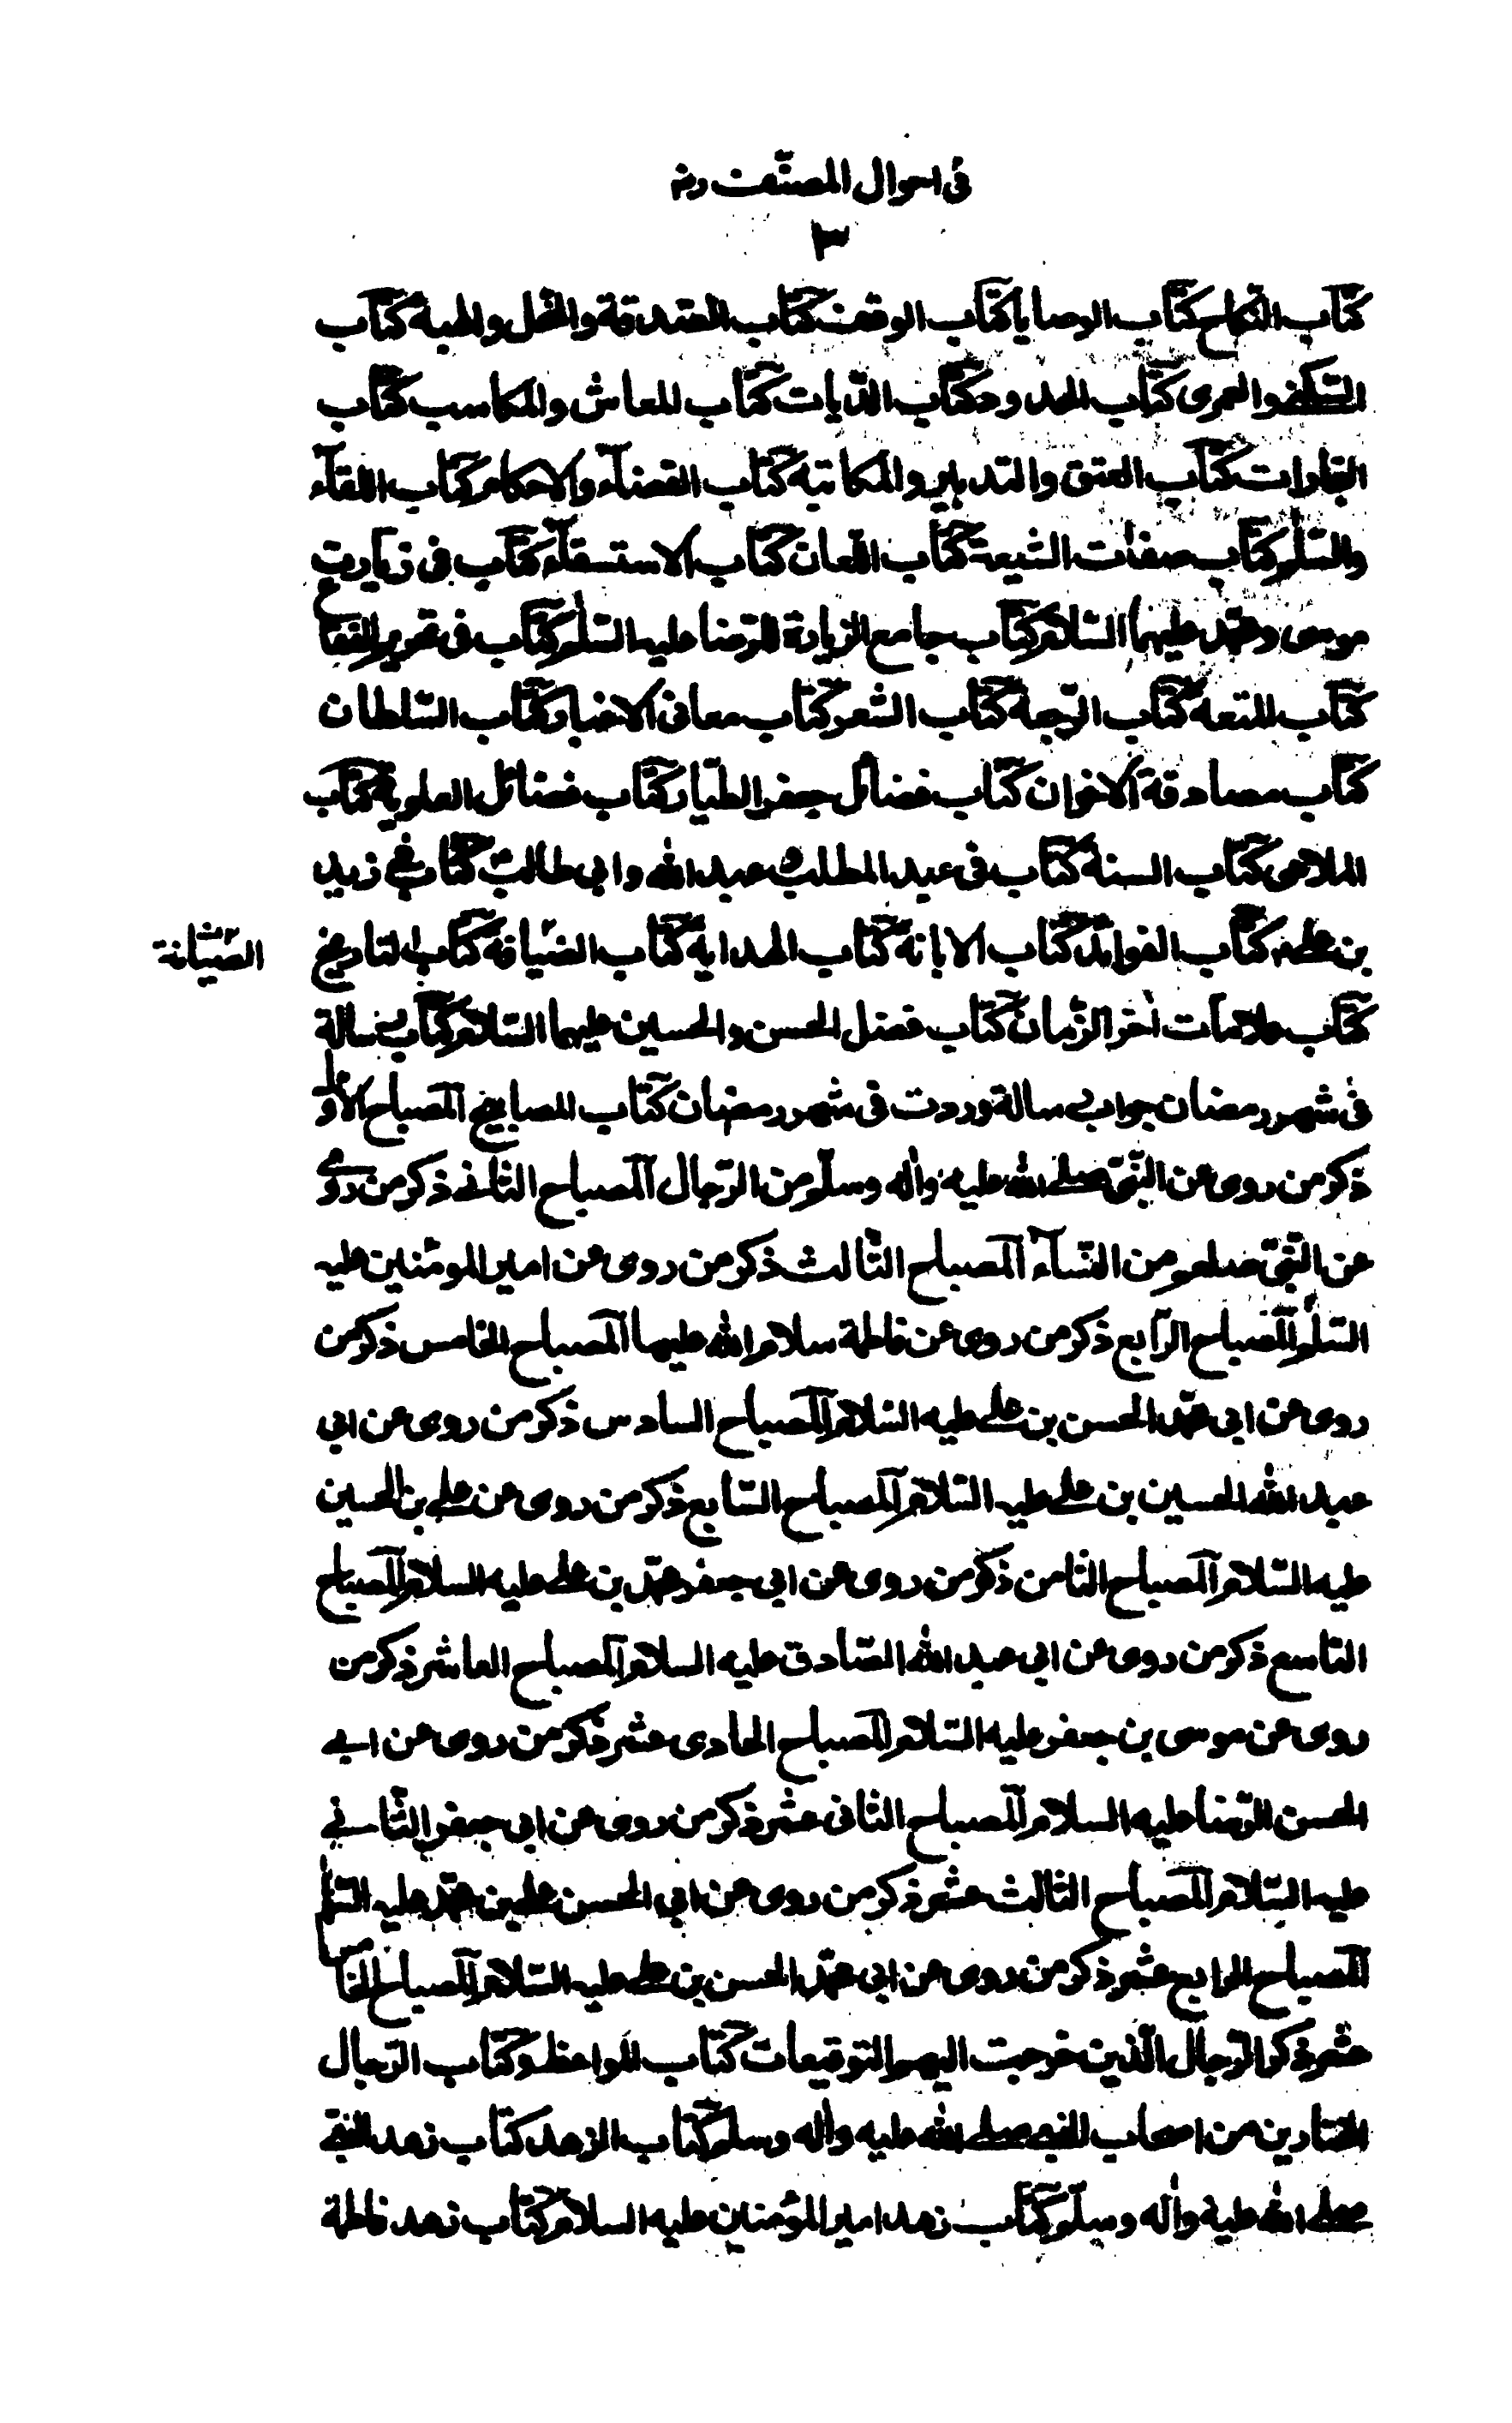 فی احوال المصنّف ره
٣
كتاب النكاح كتاب الوصايا كتاب الوقف كتاب الصّدقة والنّحل والهبة كتاب
السّكنى والعمرى كتاب الحدود كتاب الدّيات كتاب المعاش والمكاسب كتاب
التجارات كتاب العتق والتدبير والمكاتبة كتاب القضآء والاحكام كتاب اللقآء
والسّلم كتاب صفات الشيعة كتاب اللّعان كتاب الاستسقآء كتاب فى زيارت
موسى ومحمّد عليهما السّلام كتاب جامع الزيارة الرّضا عليه السّلم كتاب فى تحريم الفقاع
كتاب المتعة كتاب الرّجعة كتاب الشعر كتاب معانى الاخبار كتاب السّلطان
كتاب مصادقة الاخوان كتاب فضائل جعفر الطيّار كتاب فضائل العلوية كتاب
الملاهى كتاب السنة كتاب فى عبد المطلب عبد الله وابى طالب كتاب فى زيد
بن على كتاب الفوائد كتاب الابانة كتاب الهداية كتاب الضيافة كتاب التاريخ
الصّيانة
كتاب علامات اٰخر الزّمان كتاب فضل الحسن والحسين عليهما السّلام كتاب رسالة
فى شهر رمضان جواب رسالة وردت فى شهر رمضان كتاب المصابيح المصباح الاوّل
ذكر من روى عن النّبىّ صلى الله عليه واٰله وسلّم من الرّجال المصباح الثانى ذكر من روى
عن النّبىّ صلعم من النّسآء المصباح الثّالث ذكر من روى عن امير المؤمنين عليه
السّلم المصباح الرّابع ذكر من روى عن فاطمة سلام الله عليها المصباح الخامس ذكر من
روى عن ابى محمّد الحسن بن على عليه السّلام المصباح السادس ذكر من روى عن ابى
عبد الله الحسين بن على عليه السّلام المصباح السّابع ذكر من روى عن على بن الحسين
عليه السّلام المصباح الثامن ذكر من روى عن ابى جعفر محمّد بن على عليه السلام المصباح
التاسع ذكر من روى عن ابى عبد الله الصّادق عليه السلام المصباح العاشر ذكر من
روى عن موسى بن جعفر عليه السّلام المصباح الحادى عشر ذكر من روى عن ابى
الحسن الرّضا عليه السلام المصباح الثانى عشر ذكر من روى عن ابى جعفر الثّانى
عليه السّلام المصباح الثالث عشر ذكر من روى عن ابى الحسن على بن محمّد عليه السّلم
المصباح الرابع عشر ذكر من روى عن ابى محمّد الحسن بن على عليه السّلام المصباح الخامس
عشر ذكر الرّجال الّذين خرجت اليهم التوقيعات كتاب المواعظ وكتاب الرّجال
المختارين من اصحاب النبى صلى الله عليه واٰله وسلم كتاب الزهد كتاب زهد النبى
صلى الله عليه واٰله وسلّم كتاب زهد امير المؤمنين عليه السلام كتاب زهد فاطمة